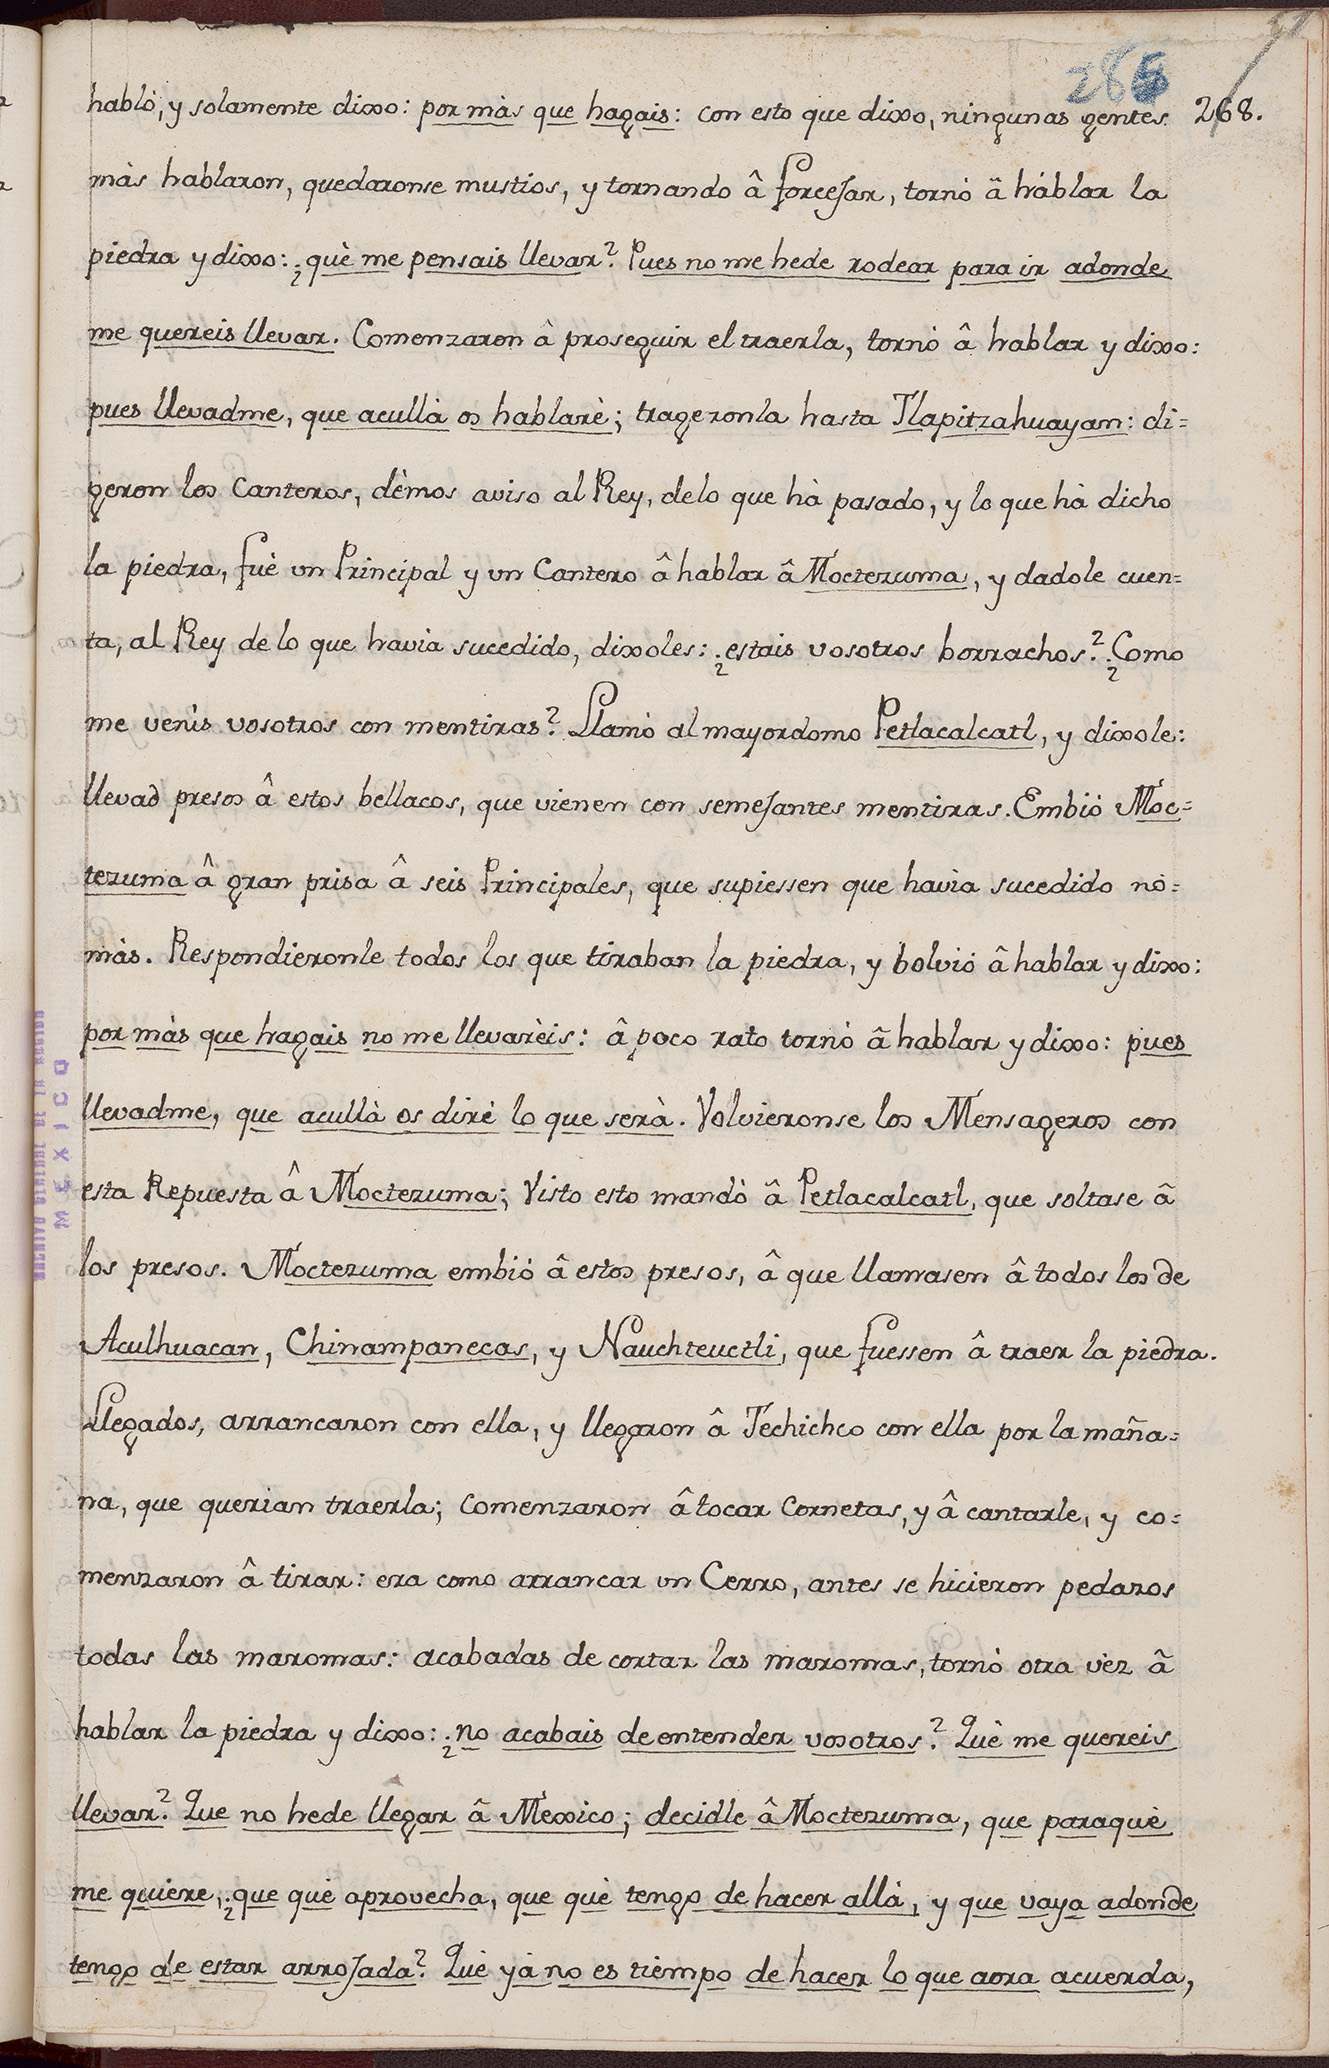 268.
habló, y solamente dixo: por màs que hagais: con esto que dixo, ningunas gentes
màs hablaron, quedaronse mustios, y tornando â forcejar, tornó â hablar la
piedra y dixo: ¿què me pensais llevar? Pues no me hede rodear para ir adonde
me quereis llevar. Comenzaron â proseguir el traerla, tornó â hablar y dixo:
pues llevadme, que acullà os hablarè; trageronla hasta Tlapitzahuayan: di=
geron los Canteros, dèmos aviso al Rey, delo que hà pasado, y lo que hà dicho
la piedra, fuè un Principal y un Cantero â hablar â Moctezuma, y dadole cuen=
ta, al Rey de lo que havia sucedido, dixoles: ¿estais vosotros borrachos? ¿Como
me venis vosotros con mentiras? Llamó al mayordomo Petlacalcatl, y dixole:
llevad presos â estos bellacos, que vienen con semejantes mentiras. Embió Moc=
tezuma â gran prisa â seis Principales, que supiessen que havia sucedido nò=
màs. Respondieronle todos los que tiraban la piedra, y bolvió â hablar y dixo:
por màs que hagais no me llevarèis: â poco rato tornó â hablar y dixo: pues
llevadme, que acullà os diré lo que serà. Volvieronse los Mensageros con
esta Repuesta â Moctezuma; Visto esto mandò â Petlacalcatl, que soltase â
los presos. Moctezuma embió â estos presos, â que llamasen â todos los de
Aculhuacan, Chinampanecas, y Nauchteuctli, que fuessen â traer la piedra.
Llegados, arrancaron con ella, y llegaron â Techichco con ella por la maña=
na, que querian traerla; comenzaron â tocar Cornetas, y â cantarle, y co=
menzaron â tirar: era como arrancar un Cerro, antes se hicieron pedazos
todas las maromas: acabadas de cortar las maromas, tornó otra vèz â
hablar la piedra y dixo: ¿no acabais de entender vosotros? Què me quereis
llevar? Que no hede llegar â Mexico; decidle â Moctezuma, que paraquè
me quiere, ¿que què aprovecha, que què tengo de hacer allà, y que vaya adonde
tengo de estar arrojada? Què yà no es tiempo de hacer lo que aora acuerda,
ARCHIVO GENERAL DE LA NACION
MEXICO